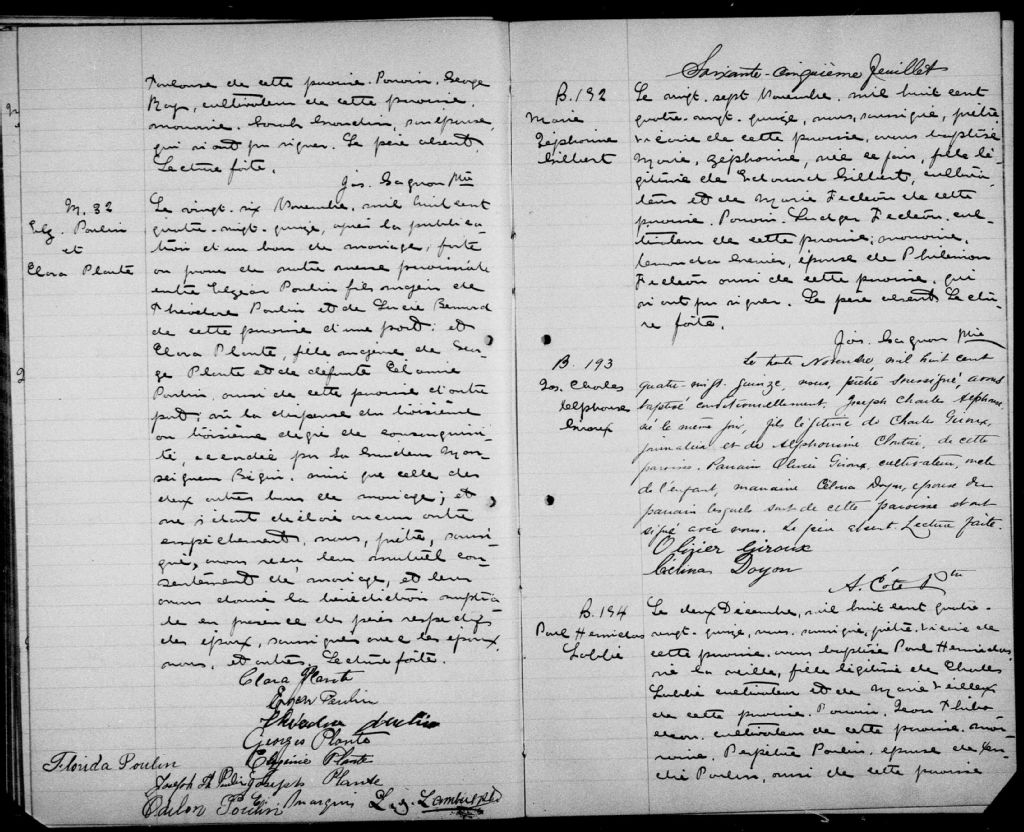 Toulouse de cette paroisse. Parrain, George
Roy, cultivateur de cette paroisse,
marraine, Sarah Grondin, son épouse,
qui n'ont pu signer. Le père absent.
Lecture faite.
Jos. Gagnon Ptre
M. 32
Elz. Poulin
et
Clara Plante
Le vingt-six Novembre, mil huit cent
quatre-vingt-quinze, après la publica-
tion d'un ban de mariage, faite
au prône de notre messe paroissiale
entre Elzéar Poulin fils majeur de
Théodore Poulin et de Lucie Bernard
de cette paroisse d'une part; et
Clara Plante, fille majeure de Geor-
ge Plante et de défunte
Poulin, aussi de cette paroisse d'autre
part; vu la dispense du troisième
au troisième degré de consanguini-
té, accordée par Sa Grandeur Mon-
seigneur Bégin, ainsi que celle des
deux autres bans de mariage; et
ne s'étant déclaré aucun autre
empêchement, nous, prêtre, soussi-
gné, avons reçu leur mutuel con-
sentement de mariage, et leur
avons donné la bénédiction nuptia-
le en présence des pères respectifs
des époux, soussignés avec les époux,
nous, et autres. Lecture faite.
Clara Plante
Poulin
Théodore Poulin
Georges Plante
Florida Poulin
Plante
Joseph Plante
Odilon Poulin
Soixante-cinquième Feuillet
B. 192
Marie
Zéphonne
Gilbert
Le vingt-sept Novembre, mil huit cent
quatre-vingt-quinze, nous, soussigné, prêtre,
vicaire de cette paroisse, avons baptisé
Marie, Zéphonne, née ce jour, fille lé-
gitime de Edouard Gilbert, cultiva-
teur et de Marie Fecteau de cette
paroisse. Parrain, Ludger Fecteau, cul-
tivateur de cette paroisse; marraine,
Grenier, épouse de Philémon
Fecteau aussi de cette paroisse, qui
n'ont pu signer. Le père absent. Lectu-
re faite.
Jos. Gagnon Ptre
B. 193
Jos. Charles
Alphonse
Giroux
Le trente Novembre, mil huit cent
quatre-vingt-quinze, nous, prêtre soussigné, avons
baptisé conditionnellement, Joseph Charles Alphonse,
né le même jour, fils légitime de Charles Giroux,
journalier et de Alphonsine Cloutier, de cette
paroisse. Parrain Olivier Giroux, cultivateur, oncle
de l'enfant, marraine Célina Doyon, épouse du
parrain lesquels sont de cette paroisse et ont
signé avec nous. Le père absent Lecture faite.
Olivier Giroux
Célina Doyon
A. Côté Ptre
B. 194
Paul Henricho
Labbé
Le deux Décembre, mil huit cent quatre-
vingt-quinze, nous, soussigné, prêtre, vicaire de
cette paroisse, avons baptisé Paul Henricho,
né la veille, fils légitime de Charles
Labbé cultivateur et de Marie Veilleux
de cette paroisse. Parrain, Jean Thibo-
deau, cultivateur de cette paroisse, mar-
raine, Perpétue Poulin, épouse de
Poulin, aussi de cette paroisse